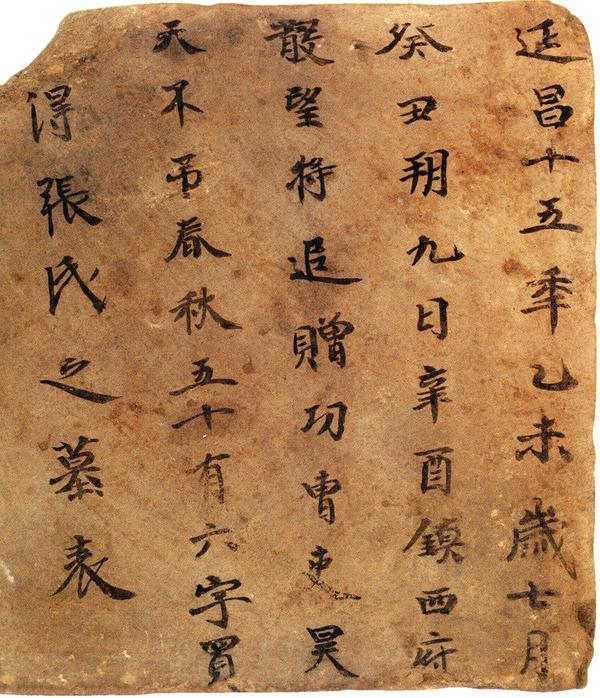 延昌十五秊乙未歲七月
癸丑朔九日辛酉鎮西府
散望将追贈功曹吏昊
天不吊春秋五十有六字買
得張氏之墓表